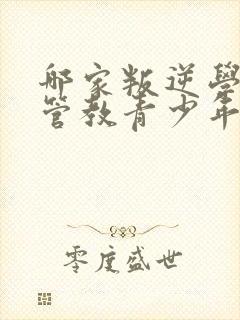 那家叛逆學
管教青少年
零度盛世